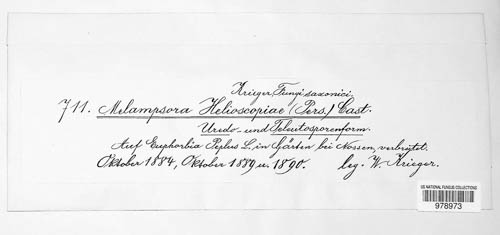 Krieger, Fungi saxonici.
711. Melampsora Helioscopiae (Pers.) Cast.
Uredo- und Teleutosporenform.
Auf Euphorbia Peplus L., in Gärten bei Nossen, verbreitet.
Oktober 1884, Oktober 1889 u. 1890. leg. W. Krieger.
US NATIONAL FUNGUS COLLECTIONS
978973